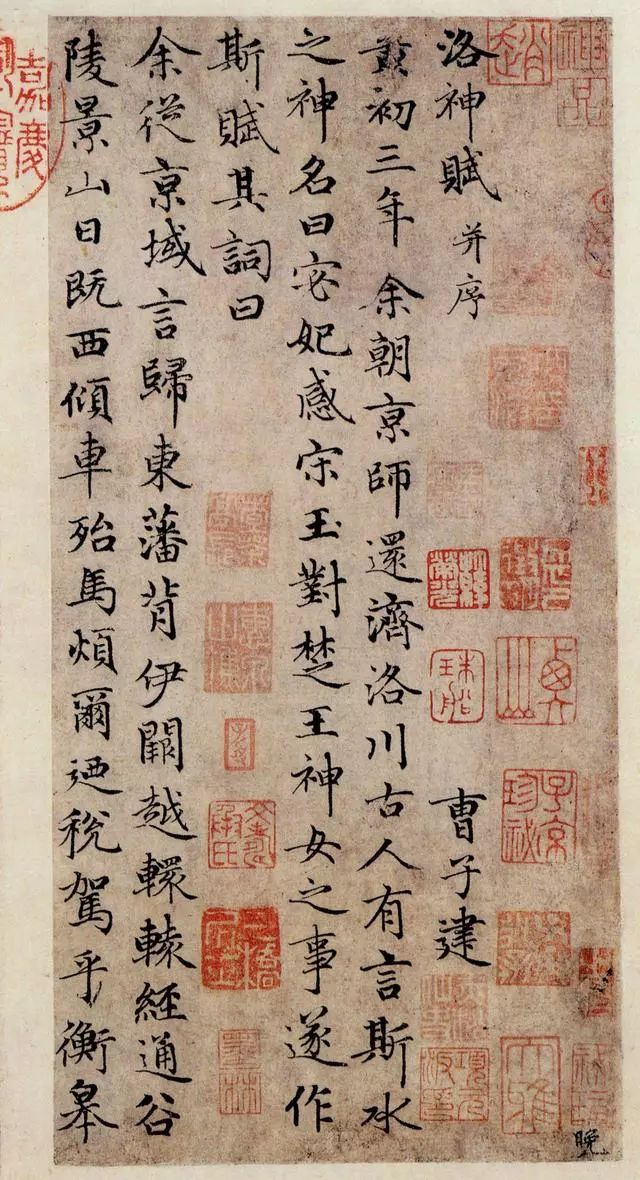 神品
趙
子京珍祕
晚
洛神賦 并序 曹子建
黃初三年余朝京師還濟洛川古人有言斯水
之神名曰宓妃感宋玉對楚王神女之事遂作
斯賦其詞曰
墨林
余從京域言歸東藩背伊闕越轘轅經通谷
陵景山日既西傾車殆馬煩爾迺稅駕乎衡皋
嘉慶